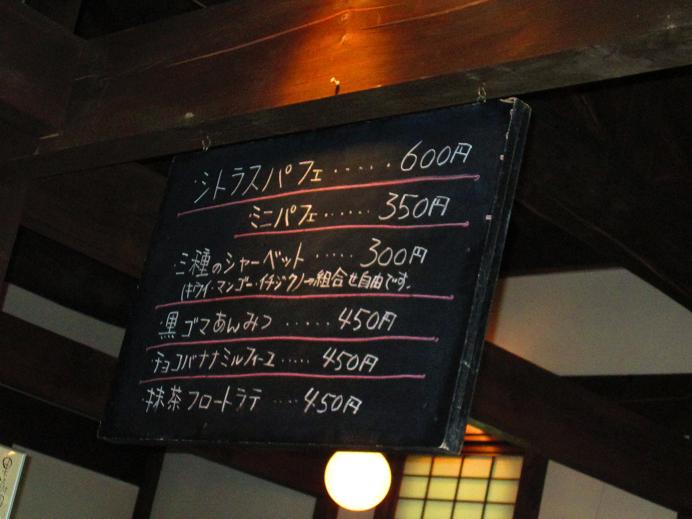 シトラスパフェ・・・・・600円
ミニパフェ・・・・・350円
三種のシャーベット・・・・・300円
(キウイ・マンゴー・イチジク)→組合せ自由です。
黒ゴマあんみつ・・・・・450円
チョコバナナミルフィーユ・・・・・450円
抹茶フロートラテ・・・・450円